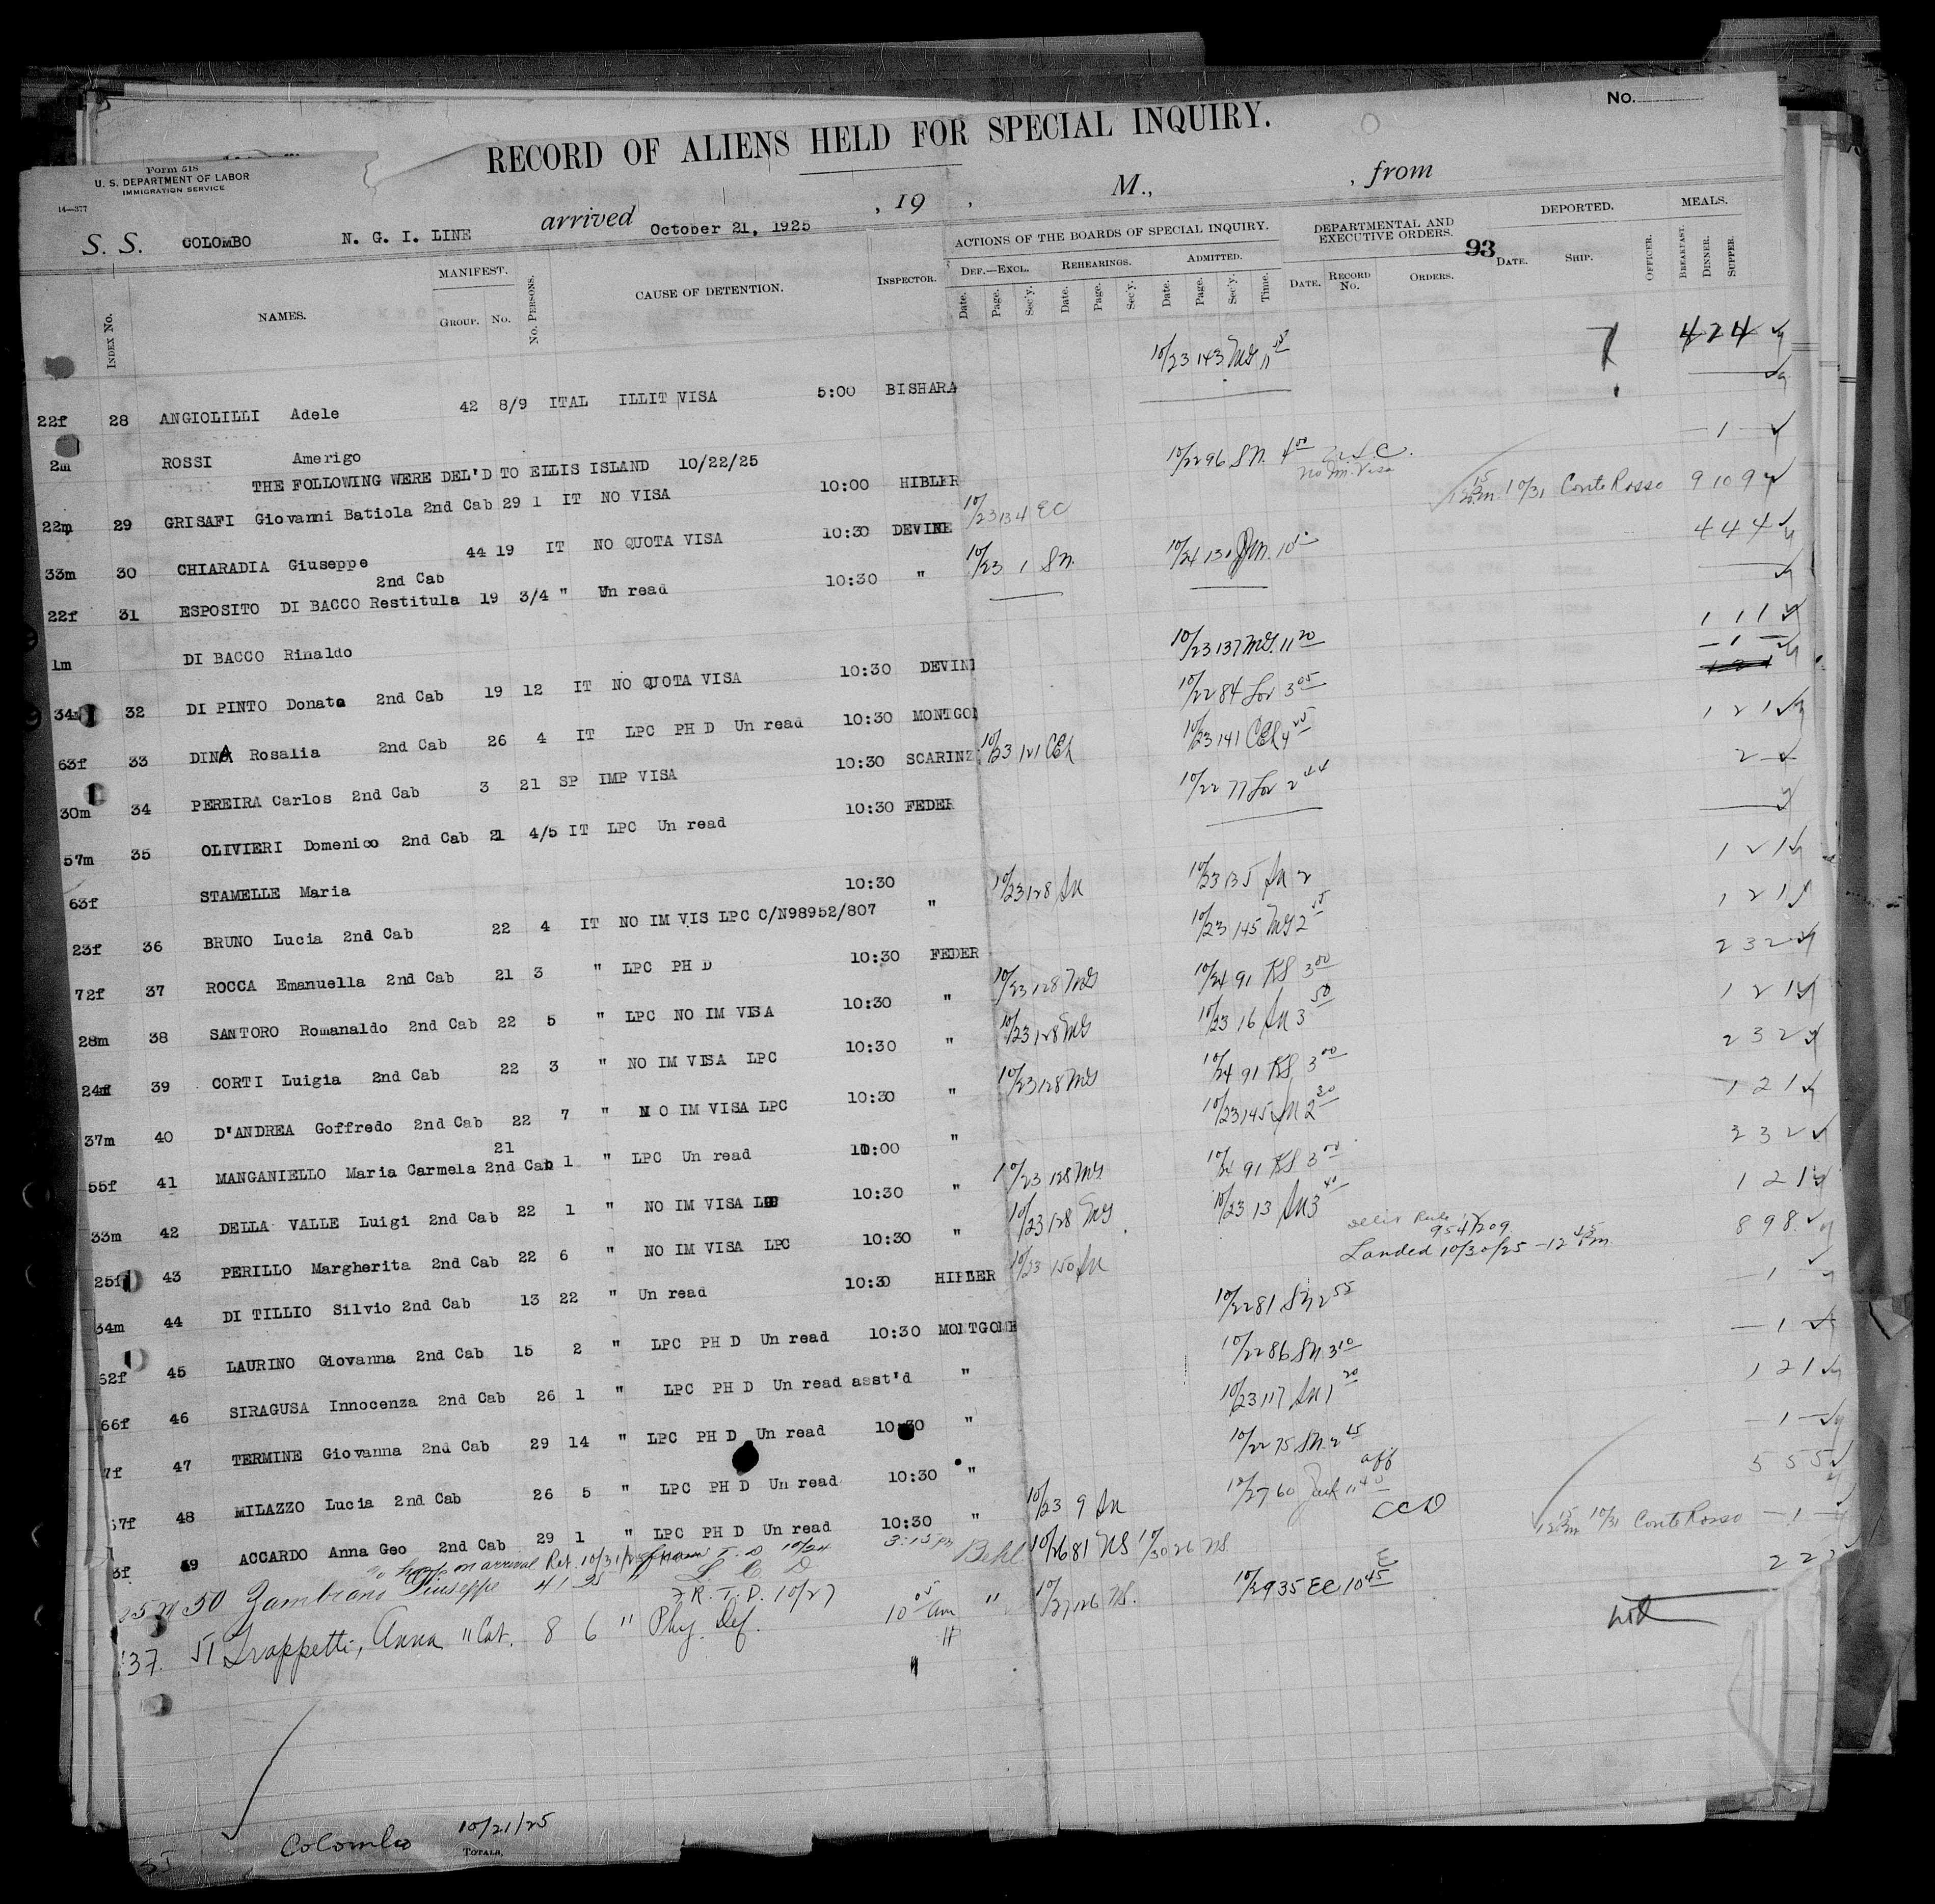 No.
RECORD OF ALIENS HELD FOR SPECIAL INQUIRY.
Form 518
U. S. DEPARTMENT OF LABOR
IMMIGRATION SERVICE
14—377
S. S. COLOMBO N. G. I. LINE arrived October 21, 1925 , 19 , M., , from
93
INDEX No. NAMES. MANIFEST. GROUP. No. No. PERSONS. CAUSE OF DETENTION. INSPECTOR. ACTIONS OF THE BOARDS OF SPECIAL INQUIRY. DEF.—EXCL. Date. Page. Sec'y. REHEARINGS. Date. Page. Sec'y. ADMITTED. Date. Page. Sec'y. Time. DEPARTMENTAL AND EXECUTIVE ORDERS. DATE. RECORD No. ORDERS. DEPORTED. DATE. SHIP. OFFICER. MEALS. BREAKFAST. DINNER. SUPPER.
22f 28 ANGIOLILLI Adele 42 8/9 ITAL ILLIT VISA 5:00 BISHARA 10/23 143 4 2 4
2m ROSSI Amerigo
THE FOLLOWING WERE DEL'D TO ELLIS ISLAND 10/22/25
22m 29 GRISAFI Giovanni Batiola 2nd Cab 29 1 IT NO VISA 10:00 HIBLER 10/22 96 SN. 4 00 — 1 —
33m 30 CHIARADIA Giuseppe 44 19 IT NO QUOTA VISA 10:30 DEVINE 10/23 134 EC No Im. Visa 10/31 Conte Rosso 9 10 9
22f 31 ESPOSITO DI BACCO Restitula 2nd Cab 19 3/4 " Un read 10:30 " 10/23 1 SN. 10/24 4 4 4
1m DI BACCO Rinaldo
34m 32 DI PINTO Donato 2nd Cab 19 12 IT NO QUOTA VISA 10:30 DEVINE 10/23 137 MG. 11 20 1 1 1
63f 33 DINA Rosalia 2nd Cab 26 4 IT LPC PH D Un read 10:30 MONTGOM 10/22 84 3 05 — 1 —
30m 34 PEREIRA Carlos 2nd Cab 3 21 SP IMP VISA 10:30 SCARINZ 10/23 121 CEh 10/23 141 CEh 4 1 2 1
57m 35 OLIVIERI Domenico 2nd Cab 21 4/5 IT LPC Un read 10:30 FEDER 10/22 77 2 44 2 —
63f STAMELLE Maria
23f 36 BRUNO Lucia 2nd Cab 22 4 IT NO IM VIS LPC C/N98952/807 10:30 " 10/23 128 10/23 135 2 1 2 1
72f 37 ROCCA Emanuella 2nd Cab 21 3 " LPC PH D 10:30 FEDER 10/23 145 MG 2 1 2 1
28m 38 SANTORO Romanaldo 2nd Cab 22 5 " LPC NO IM VISA 10:30 " 10/23 128 MG 10/24 91 KS 3 00 2 3 2
24f 39 CORTI Luigia 2nd Cab 22 3 " NO IM VISA LPC 10:30 " 10/23 128 MG 10/23 16 3 50 1 2 1
37m 40 D'ANDREA Goffredo 2nd Cab 22 7 " NO IM VISA LPC 10:30 " 10/23 128 MG 10/24 91 KS 3 00 2 3 2
55f 41 MANGANIELLO Maria Carmela 2nd Cab 21 1 " LPC Un read 10:00 " 10/23 145 2 30 1 2 1
33m 42 DELLA VALLE Luigi 2nd Cab 22 1 " NO IM VISA 10:30 " 10/23 128 MG 10/24 91 KS 3 00 2 3 2
25f 43 PERILLO Margherita 2nd Cab 22 6 " NO IM VISA LPC 10:30 " 10/23 128 MG 10/23 13 3 40 1 2 1
34m 44 DI TILLIO Silvio 2nd Cab 13 22 " Un read 10:30 HIBLER 10/23 150 Landed 10/30/25 — 12 45 Pm. 8 9 8
62f 45 LAURINO Giovanna 2nd Cab 15 2 " LPC PH D Un read 10:30 MONTGOME 10/22 81 SN 2 55 — 1 —
66f 46 SIRAGUSA Innocenza 2nd Cab 26 1 " LPC PH D Un read asst'd " 10/22 86 SN. 3 10 — 1 —
7f 47 TERMINE Giovanna 2nd Cab 29 14 " LPC PH D Un read 10:30 " 10/23 117 1 20 1 2 1
57f 48 MILAZZO Lucia 2nd Cab 26 5 " LPC PH D Un read 10:30 " 10/22 75 SN. 2 — 1 —
3f 49 ACCARDO Anna Geo 2nd Cab 29 1 " LPC PH D Un read 10:30 " 10/23 9 10/27 60 11 40 5 5 5
50 Zambrano Giuseppe 41 25 " L C D 3:15 pm 10/26 81 NS 10/30 26 NS. 10/31 Conte Rosso — 1 —
51 Trappetti, Anna " Cab. 8 6 " Phy. Def. 10 05 am " 10/27 126 NS. 10/29 35 EC 10 45 2 2 2
Colombo 10/21/25
TOTALS,